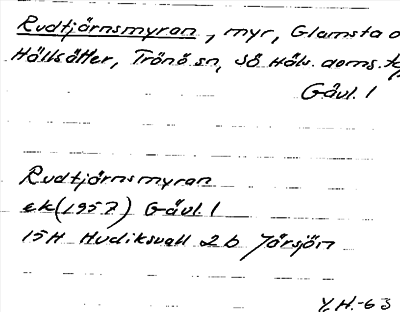 Rudtjärnsmyran, myr, Glamsta o
Hällsätter, Trönö sn, Sö Häls. doms.
Gävl. l
Rudtjärnsmyran
ek (1957) Gävl. l
15H Hudiksvall 2b Järsjön
Y.H.-63